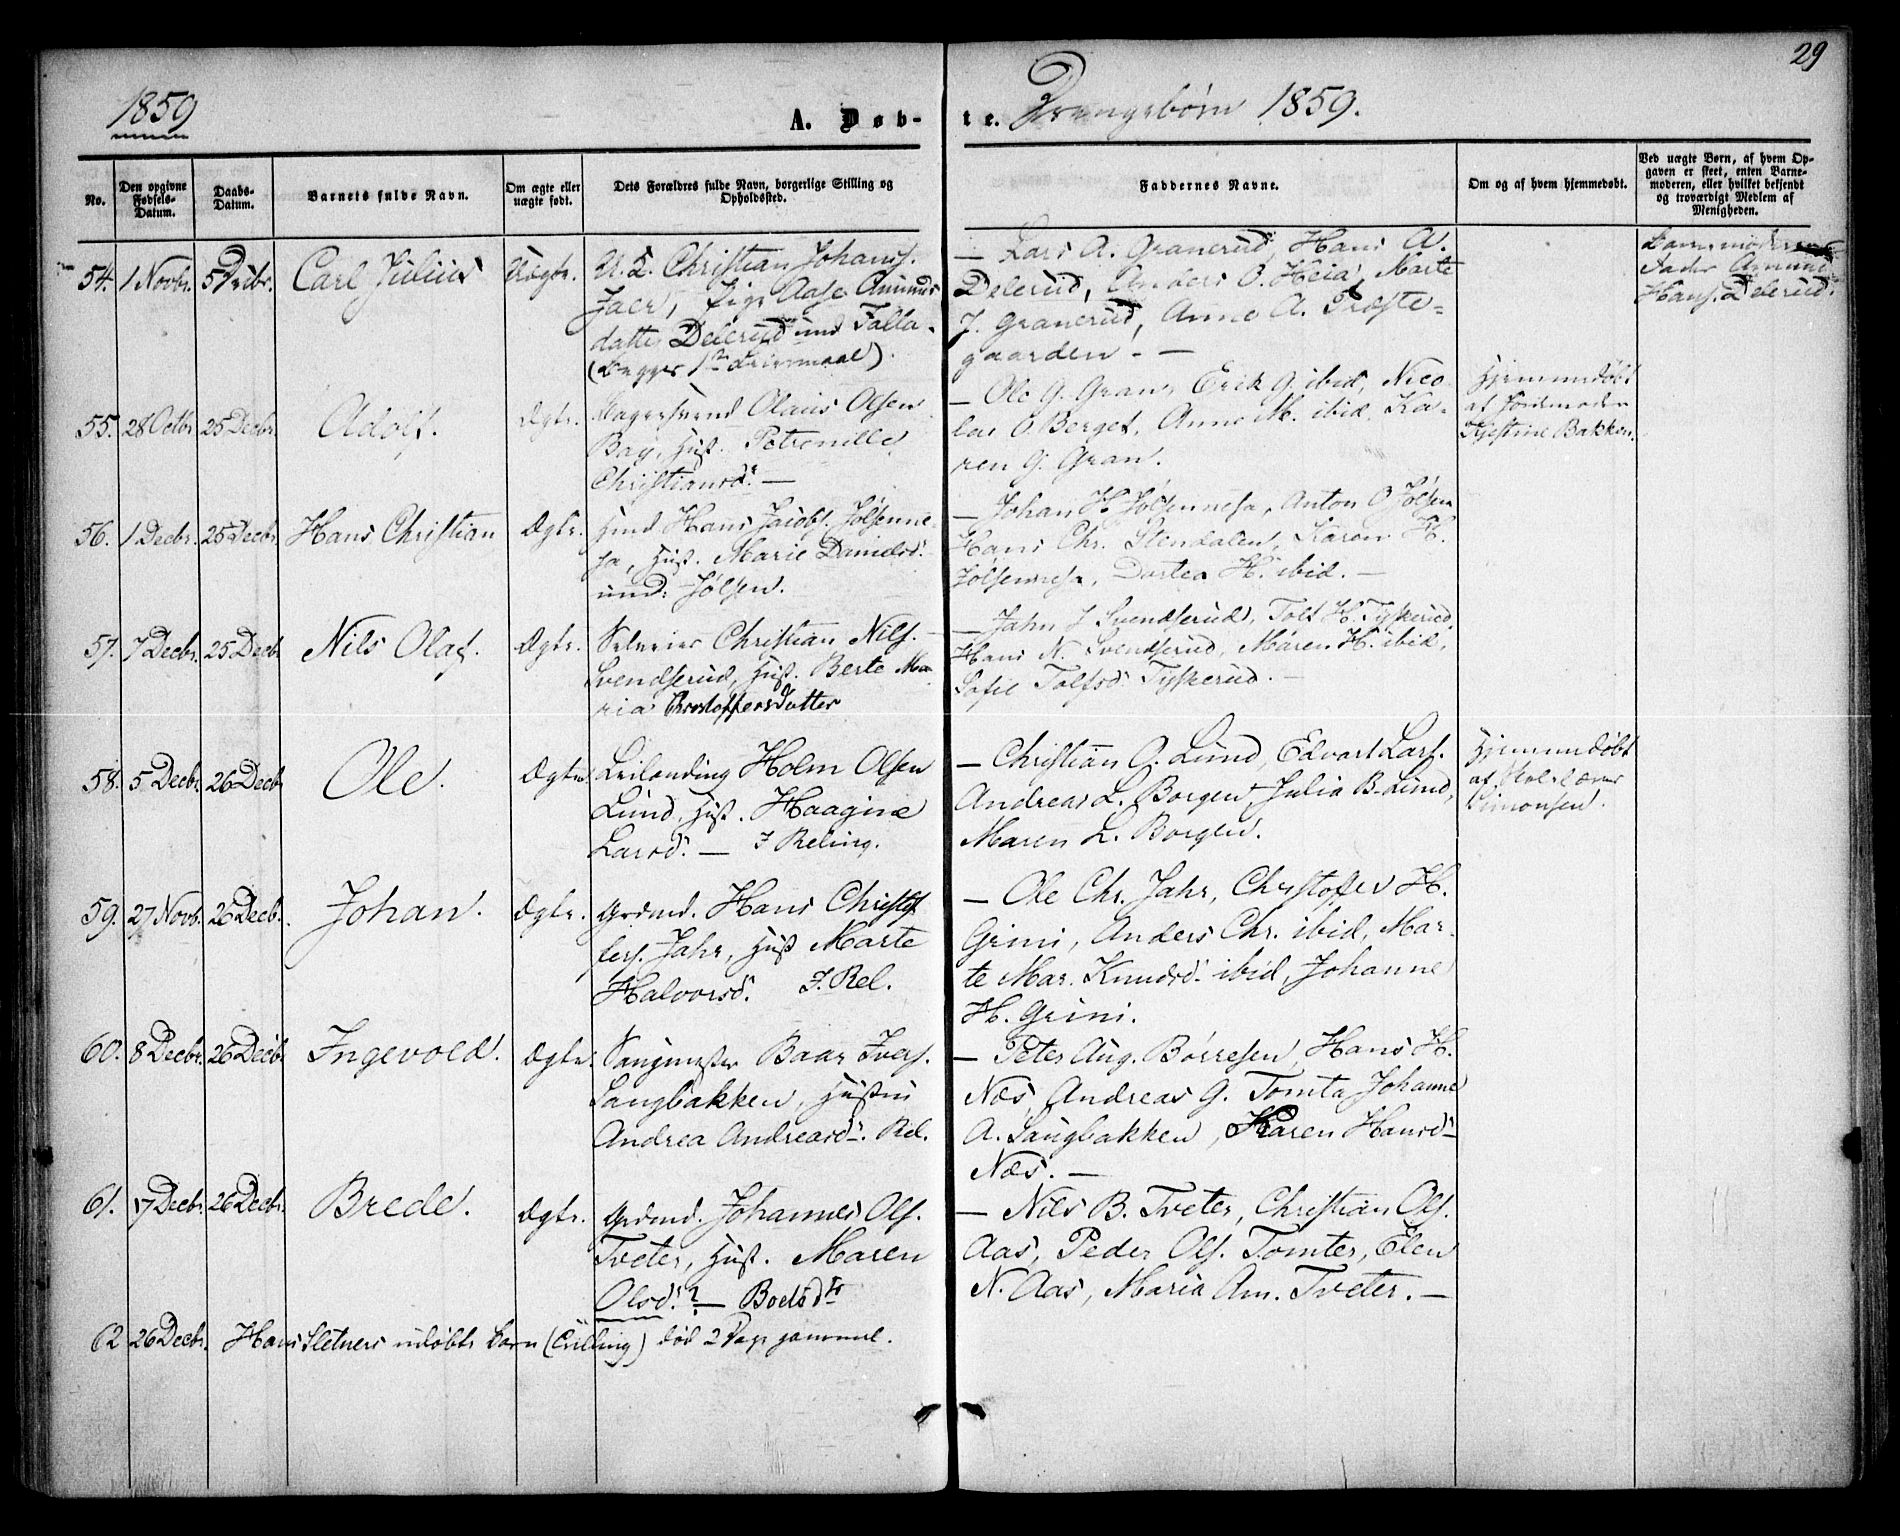 29
1859
A. Døb-
te. Drengebørn 1859.
No.
Den opgivne Fødsels-Datum.
Daabs-Datum.
Barnets fulde Navn.
Om ægte eller uægte født.
Dets Forældres fulde Navn, borgerlige Stilling og Opholdssted.
Faddernes Navne.
Om og af hvem hjemmedøbt.
Ved uægte Børn, af hvem Opgaven er skeet, enten Barnemoderen, eller hvilket bekjendt og troværdigt Medlem af Menigheden.
54. 1 Novbr. 5 Debr. Carl Julius Uægte.
U. K. Christian Johans.
Jaer, Pige Aase Amunds
datter Delerud und Falla
(Begges 1ste Leiermaal).
— Lars A. Granerud, Hans A.
Delerud, Anders O. Heia, Marte
J. Granerud, Anne A. Præste-
gaarden. —
Barnemoderens
Fader Amund
Hans. Delerud.
55. 28 Octbr. 25 Decbr. Adolf. Ægte.
Olaus Olsen
Bay, Hust. Petronille
Christiansd. —
— Ole G. Gran, Erik G. ibid, Nico
lai O. Berget, Anne M. ibid, Ka-
ren G. Gran.
Hjemmedøbt
af Jordemoder
Kjestine Bakken.
56. 1 Decbr. 25 Decbr. Hans Christian Ægte.
Hmd Hans Jacobs. Jølsenne
sa, Hust. Marie Danielsd.
und: Jølsen.
— Johan H. Jølsennesa, Anton O. Jølsen
Hans Chr. Stendalen, Karen H.
Jølsennesa, Dortea H. ibid. —
57. 7 Decbr. 25 Decbr. Nils Olaf. Ægte.
Selveier Christian Nils.
Svendserud, Hust. Berte Ma
ria Christoffersdatter
— Jahn J. Svendserud, Tolf H. Tyskerud,
Hans N. Svendserud, Maren H. ibid,
Sofie Tolfsd. Tyskerud. —
58. 5 Decbr. 26 Decbr. Ole. Ægte.
Leilending Holm Olsen
Lund, Hust. Haagine
Larsd. — I Reling.
— Christian O. Lund, Edvart Lars.
Andreas L. Borgen, Julia B. Lund,
Maren L. Borgen.
Hjemmedøbt
af Skolelærer
Simonsen.
59. 27 Novb. 26 Decb. Johan. Ægte.
Grdmd. Hans Christof
fers. Jahr, Hust Marte
Halvorsd. I. Rel.
— Ole Chr. Jahr, Christoffer H.
Grini, Anders Chr. ibid, Mar-
te Mar. Knudsd. ibid, Johanne
H. Grini.
60. 8 Decbr. 26 Decbr. Ingevold. Ægte.
Saugmester Baar Ivers.
Saugbakken, Hustru
Andrea Andreasd. Rel.
— Peter Aug. Børresen, Hans H.
Næs, Andreas G. Tomta, Johanne
A. Saugbakken, Karen Hansd.
Næs. —
61. 17 Decbr. 26 Decbr. Brede. Ægte.
Grdmd. Johannes Ols.
Tveter, Hust. Maren
Olsd.? — Boelsdtr
— Nils B. Tveter, Christian Ols.
Aas, Peder Ols. Tomter, Elen
N. Aas, Maria Am. Tveter. —
62 26 Decbr. Hans Sletners udøbte Barn (Tvilling) død 2 Dage gammel.